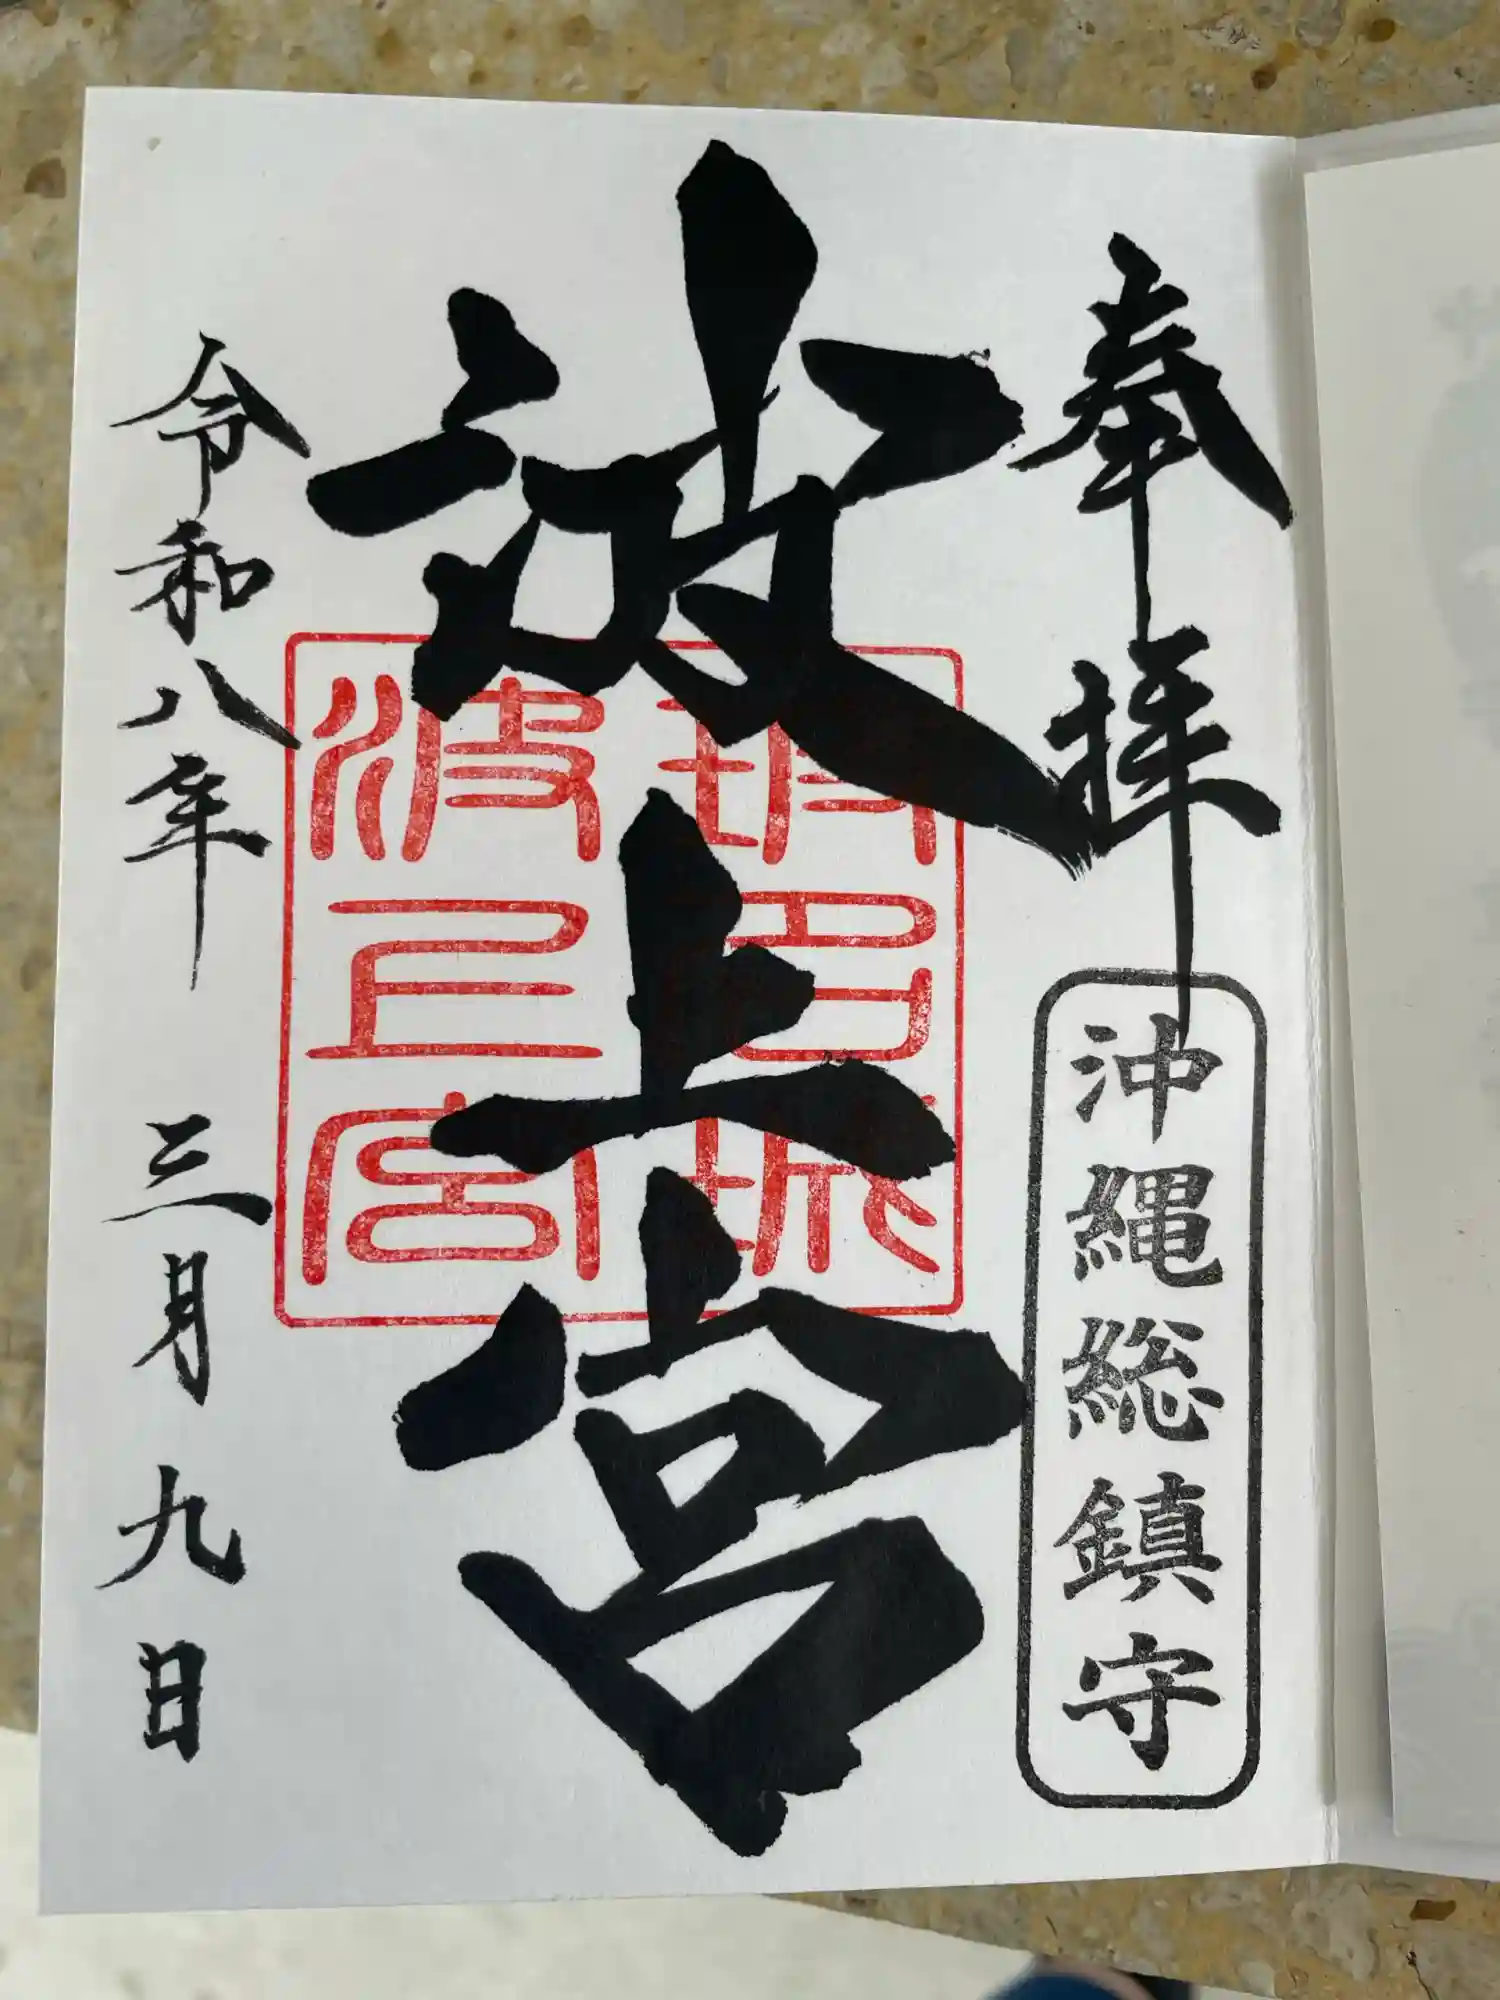 奉拝
沖縄総鎮守
波上宮
波上宮
令和八年 三月九日